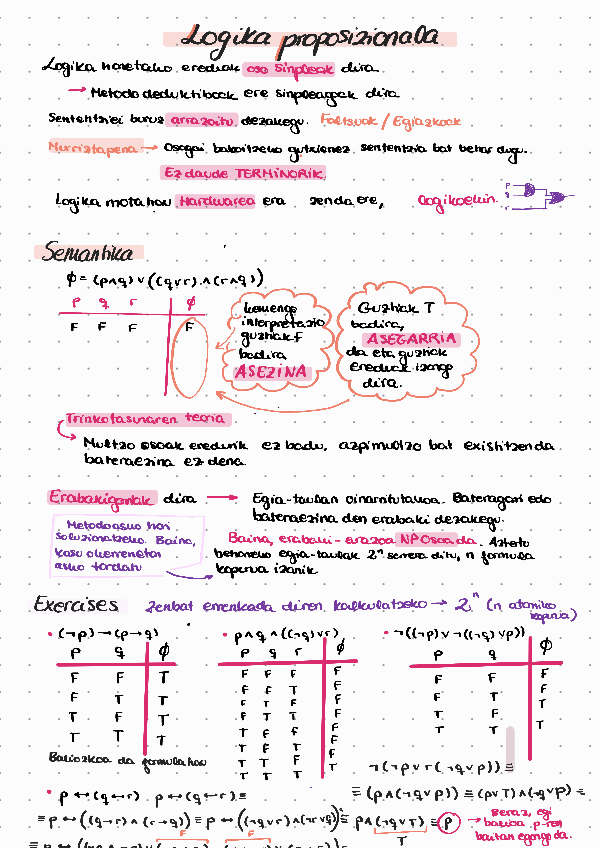 Logika proposizionala
Logika honetako ereduak oso sinpleak dira.
→ Metodo deduktiboak ere sinpleagoak dira
Sententziei buruz arrazoitu dezakegu. Faltsuak / Egiazkoak
Murriztapena → Osagai bakoitzeko gutxienez sententzia bat behar dugu.
Ez daude TERMINORIK
Logika mota hau Hardwarea era zenda ere, Logikoekin.
p
q
r
Semantika
ϕ = (p∧q) ∨ ((q∨r) ∧ (r∧q))
p q r ϕ
F F F F
hemengo
interpretazio
guztiak F
badira
ASEZINA
Guztiak T
badira,
ASEGARRIA
da eta guztiak
ereduak izango
dira.
Trinkotasunaren teoria
→ Multzo osoak eredurik ez badu, azpimultzo bat existitzen da
bateraezina ez dena.
Erabakigarriak dira → Egia-taulan oinarritutakoa. Bateragarri edo
bateraezina den erabaki dezakegu.
Metodo asko hori
soluzionatzeko. Baina,
kasu okerrenetan
asko tardatu
Baina, erabaki-arazoa NP Osoa da. Aztertu
beharreko egia-taulak 2ⁿ errenkada ditu, n formula
kopurua izanik
Exercises Zenbat errenkada diren kalkulatzeko → 2ⁿ (n atomiko
kopurua)
• (¬p) → (p → q)
p q ϕ
F F T
F T T
T F T
T T T
Baliozkoa da formula hau
• p∧q∧((¬q)∨r)
p q r ϕ
F F F F
F F T F
F T F F
F T T F
T F F F
T F T F
T T F F
T T T T
• ¬((¬p)∨¬((¬q)∨p))
p q ϕ
F F F
F T F
T F T
T T T
¬(¬p∨¬(¬q∨p)) ≡
≡ (p∧(¬q∨p)) ≡ (p∨T)∧(¬q∨p) ≡
≡ p∧(¬q∨T) ≡ p → Beraz, egi
T
balioa p-ren
baitan egongo da.
• p ↔ (q↔r) p ↔ (q↔r) ≡
≡ p ↔ ((q→r)∧(r→q)) ≡ p ↔ ((¬q∨r)∧(¬r∨q)) ≡
F F